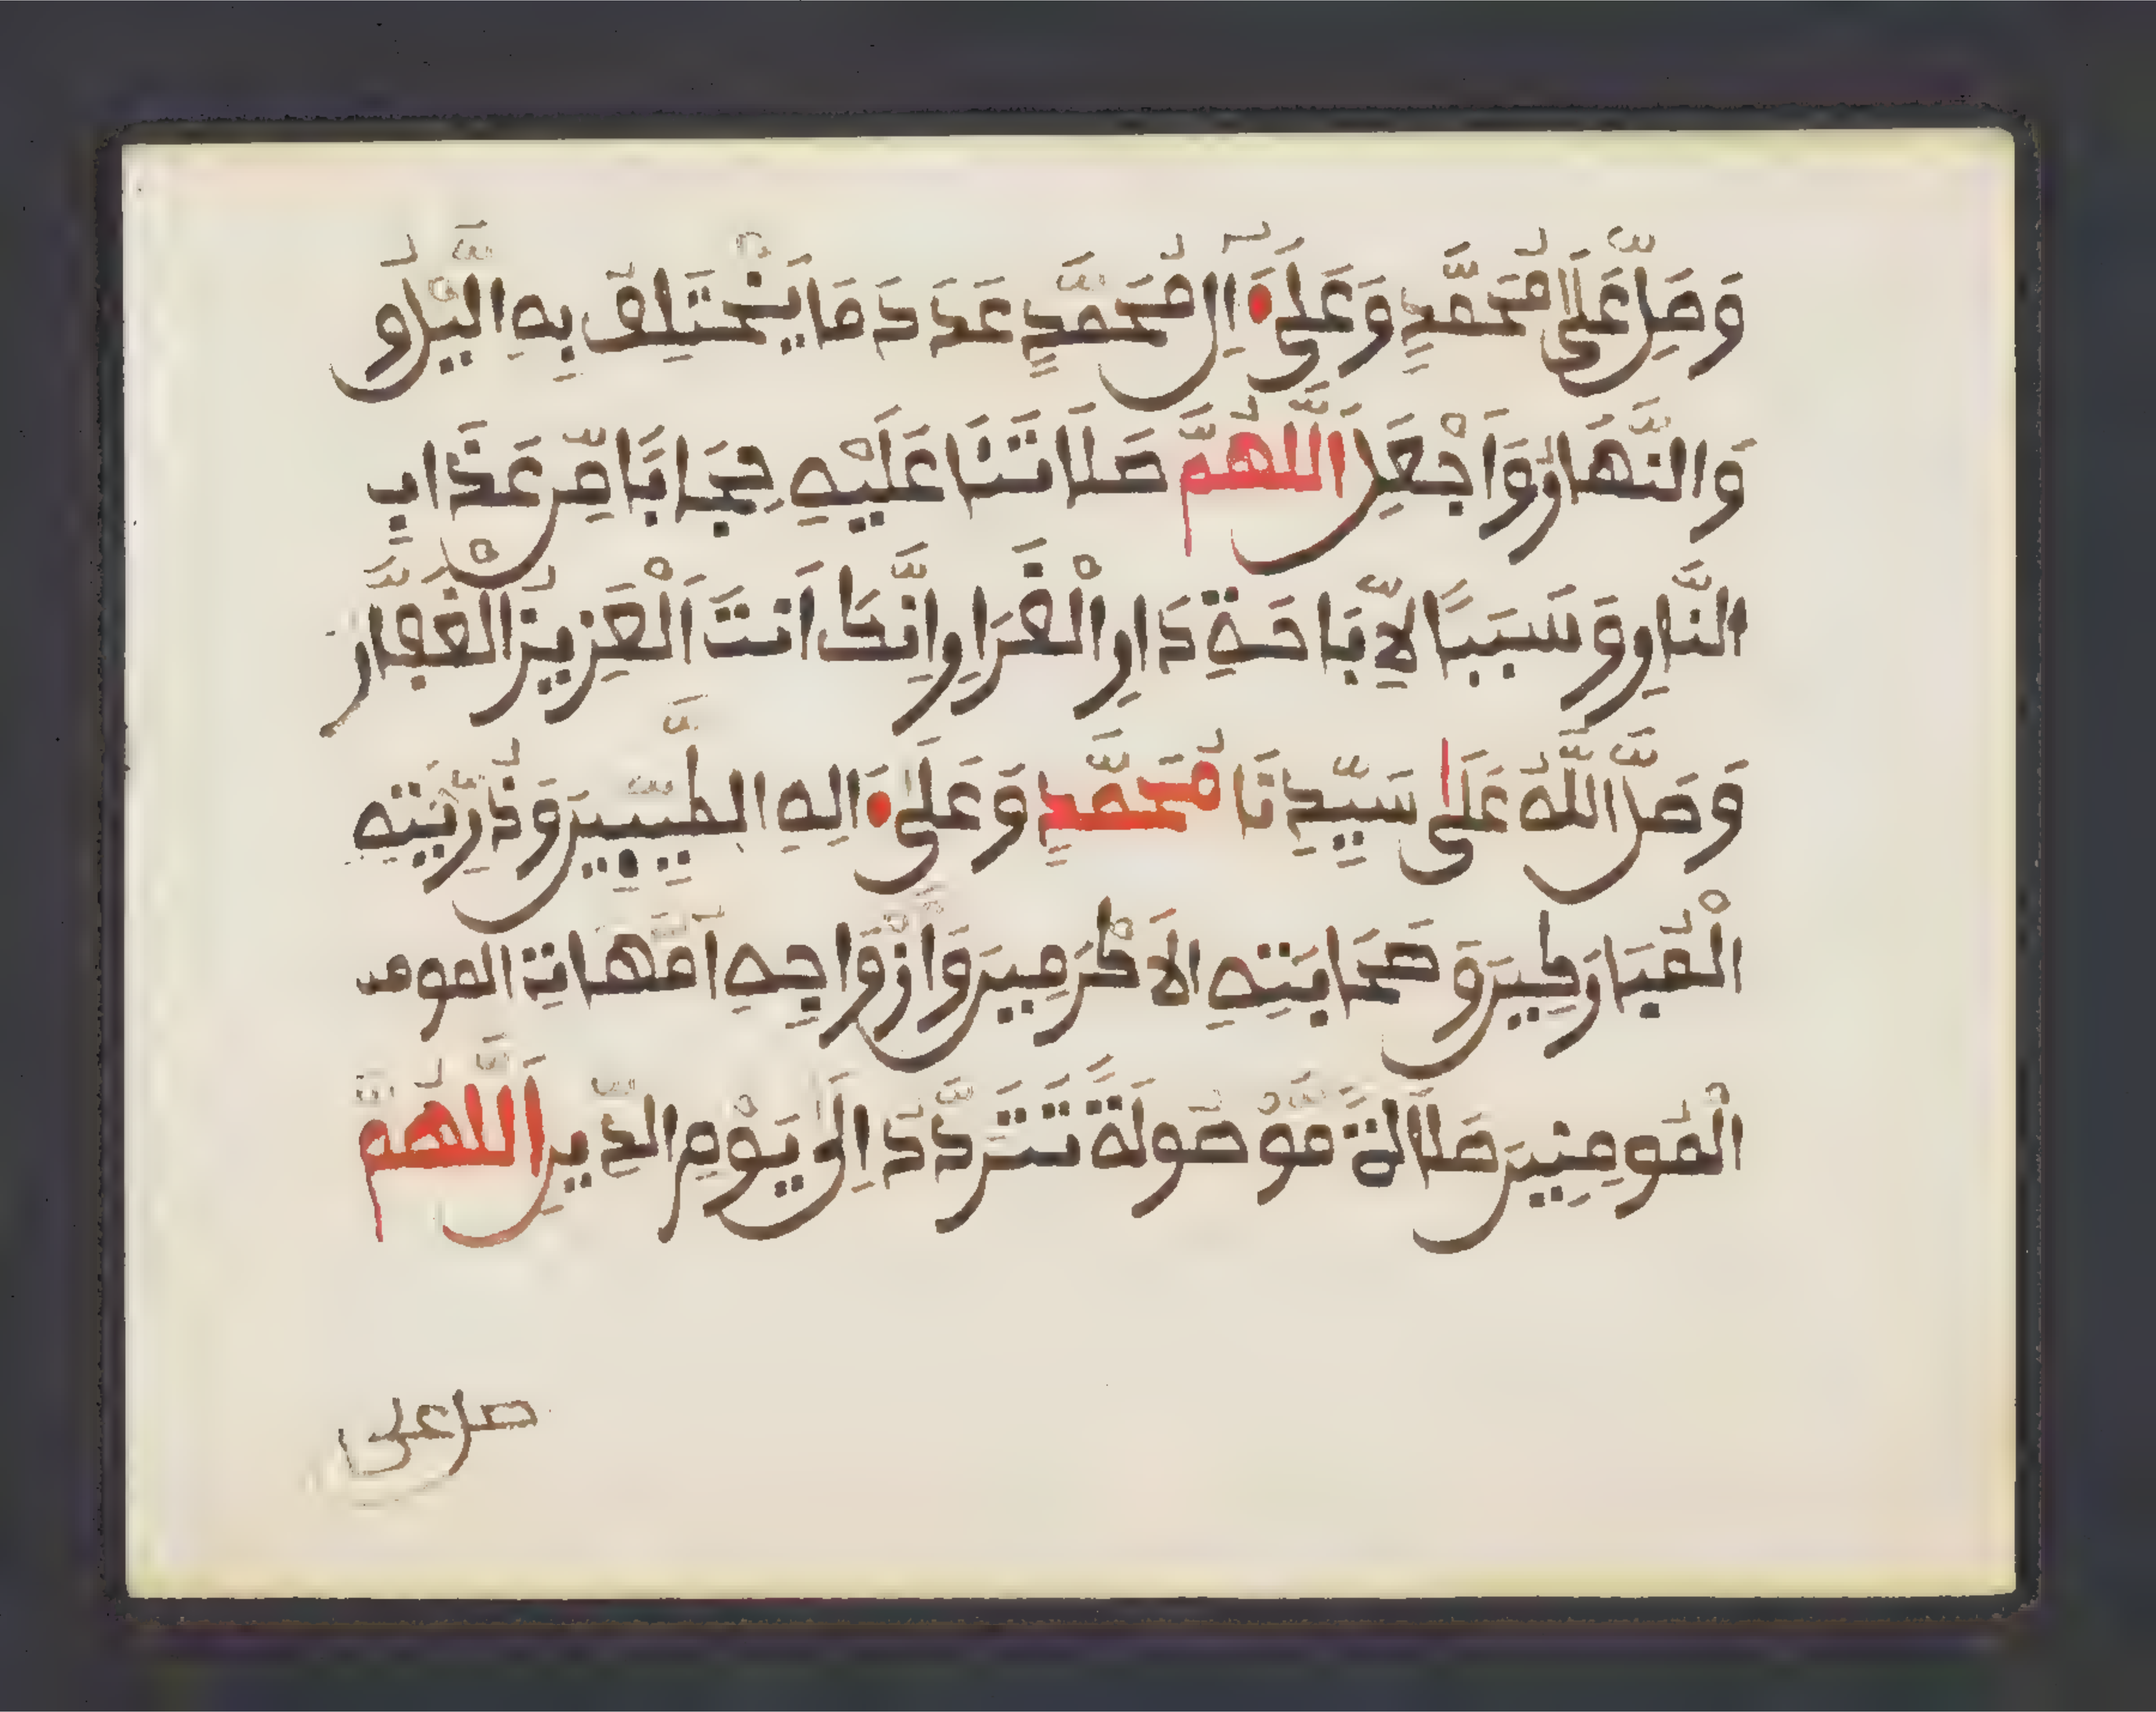 وَصَلِّ عَلَىٰ مُحَمَّدٍ وَعَلَىٰ ءَالِ مُحَمَّدٍ عَدَدَ مَا يَخْتَلِفُ بِهِ الَّيْلُ و
وَالنَّهَارُ وَاجْعَلِ اَللَّهُمَّ صَلَاتَنَا عَلَيْهِ حِجَابًا مِّنْ عَذَابِ
النَّارِ وَسَبَبًا لِّإِبَاحَةِ دَارِ الْقَرَارِ اِنَّكَ اَنتَ اَلْعَزِيزُ الْغَفَّارُ
وَصَلَّ اللَّهُ عَلَىٰ سَيِّدِنَا مُحَمَّدٍ وَعَلَىٰ ءَالِهِ الطَّيِّبِينَ وَذُرِّيَّتِهِ
الْمُبَارَكِينَ وَصَحَابَتِهِ الَاكْرَمِينَ وَأَزْوَاجِهِ أُمَّهَاتِ المومـ
الْمُومِنِينَ صَلَاةً مَّوْصُولَةً تَتَرَدَّدُ اِلَىٰ يَوْمِ الدِّينِ اَللَّهُمَّ
صل على